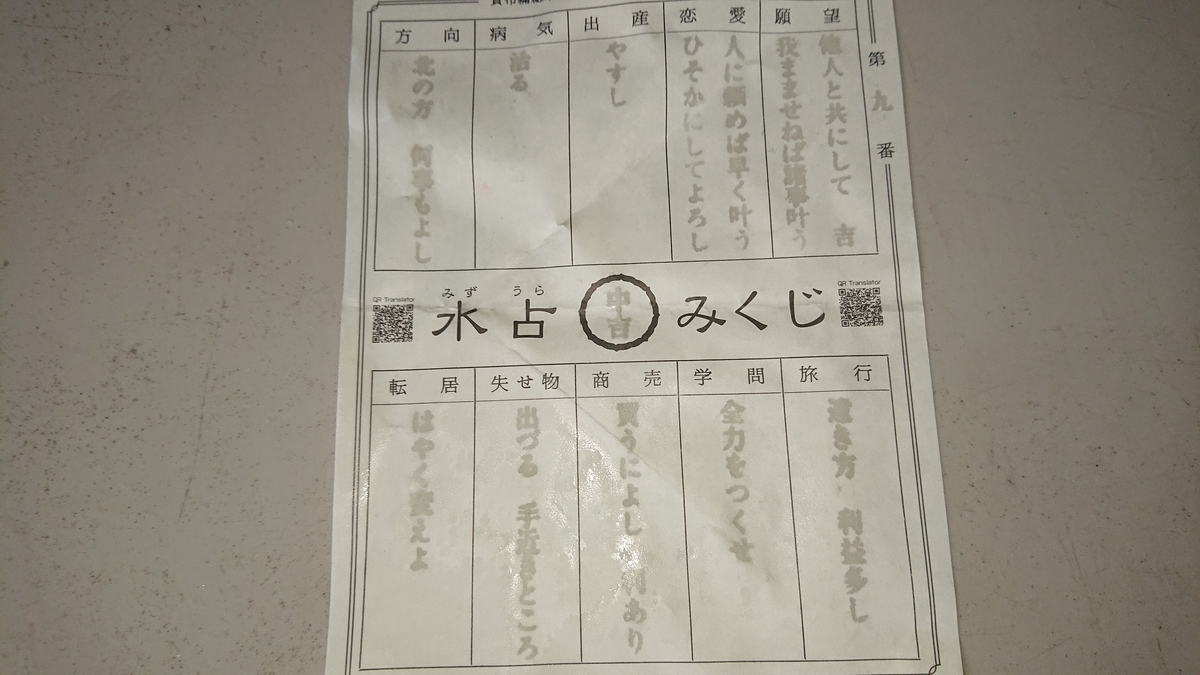 第九番
願望
他人と共にして 吉
我まませねば諸事叶う
恋愛
人に頼めば早く叶う
ひそかにしてよろし
出産
やすし
病気
治る
方向
北の方 何事もよし
QR Translator
みず うら
水占 中吉 みくじ
QR Translator
旅行
遠き方 利益多し
学問
全力をつくせ
商売
買うによし 利あり
失せ物
出づる 手近きところ
転居
はやく変えよ